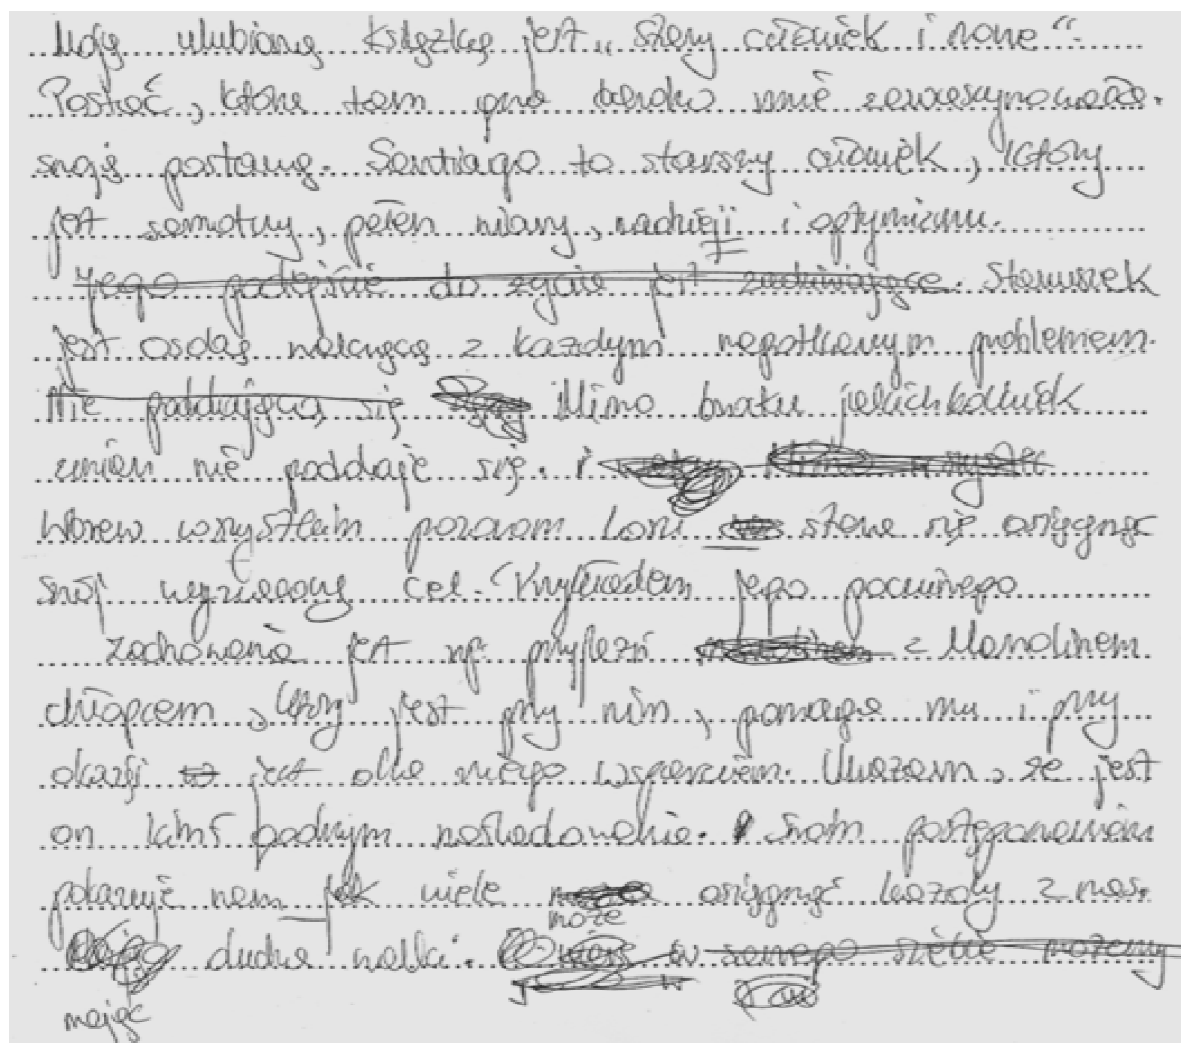 Moją ulubioną książką jest „Stary człowiek i morze".
Postać, która tam gra bardzo mnie zawascynowała.
swoją postawą. Santiago to starszy człowiek, który
jest samotny, pełen wiary, nadzieji i optymizmu.
Jego podejście do życia jest zadziwiające. Staruszek
jest osobą walczącą z każdym napotkanym problemem.
Nie poddającą się Mimo braku jakichkolwiek
zmian nie poddaje się. i
Wbrew wszystkim pozorom losu stara się osiągnąć
swój wyznaczony cel. Przykładem jego poczciwego
zachowania jest np. przyjaźń z Manolinem
chłopcem, który jest przy nim, pomaga mu i przy
okazji jest dla niego wsparciem. Uważam, że jest
on kimś godnym naśladowania. Swoim postępowaniem
pokazuje nam jak wiele może osiągnąć każdy z nas.
mając ducha walki. w samego siebie możemy